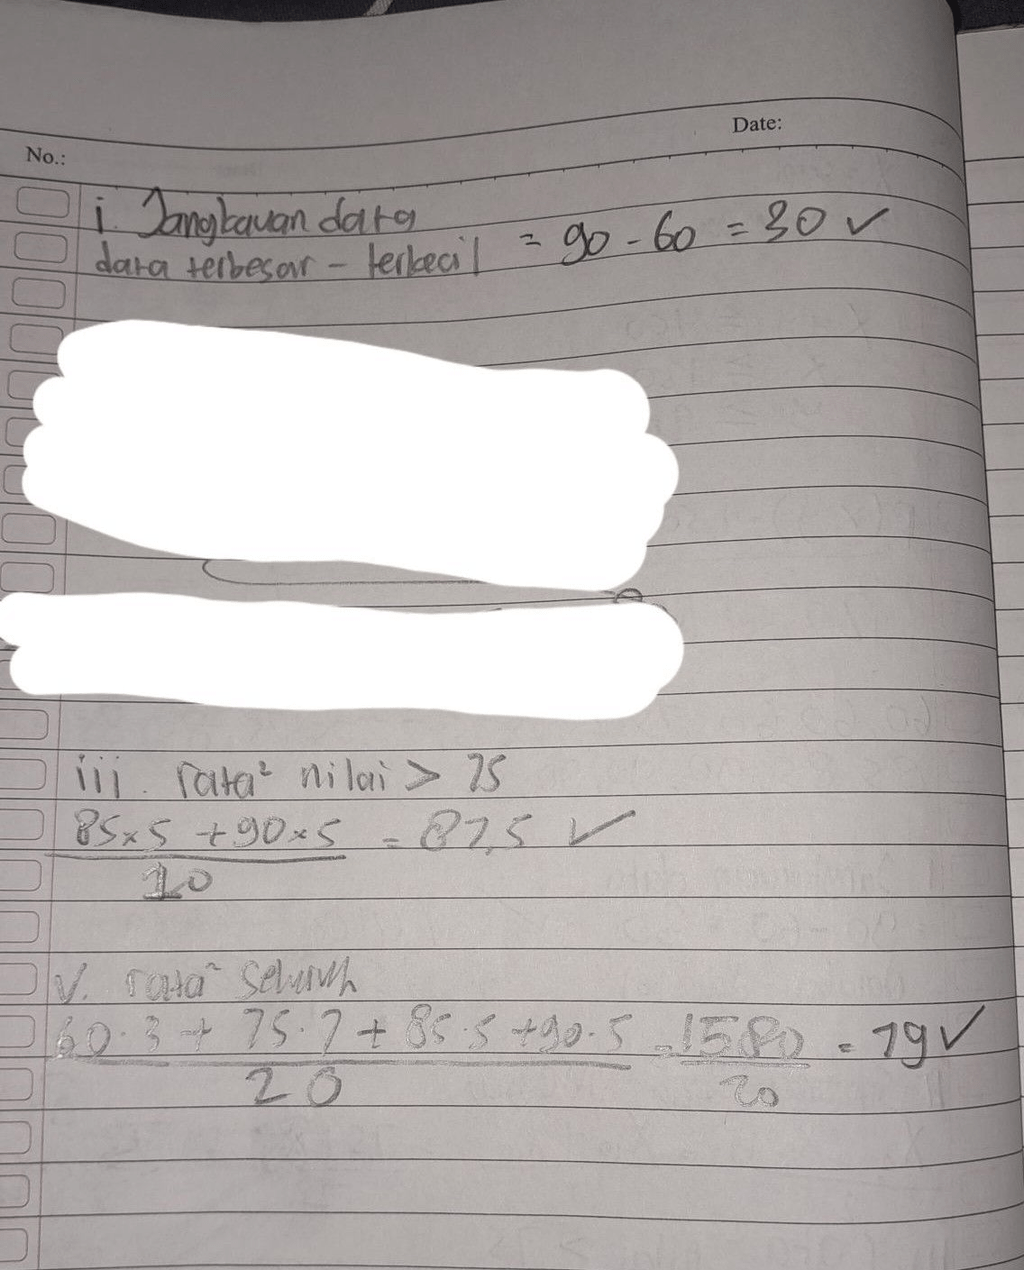 Date:
No.:
i. Jangkauan data
data terbesar - terkecil = 90 - 60 = 30 ✓
iii. rata² nilai > 75
85×5 + 90×5 = 87,5 ✓
10
v. rata² seluruh
60·3 + 75·7 + 85·5 + 90·5 = 1580 = 79 ✓
20 20